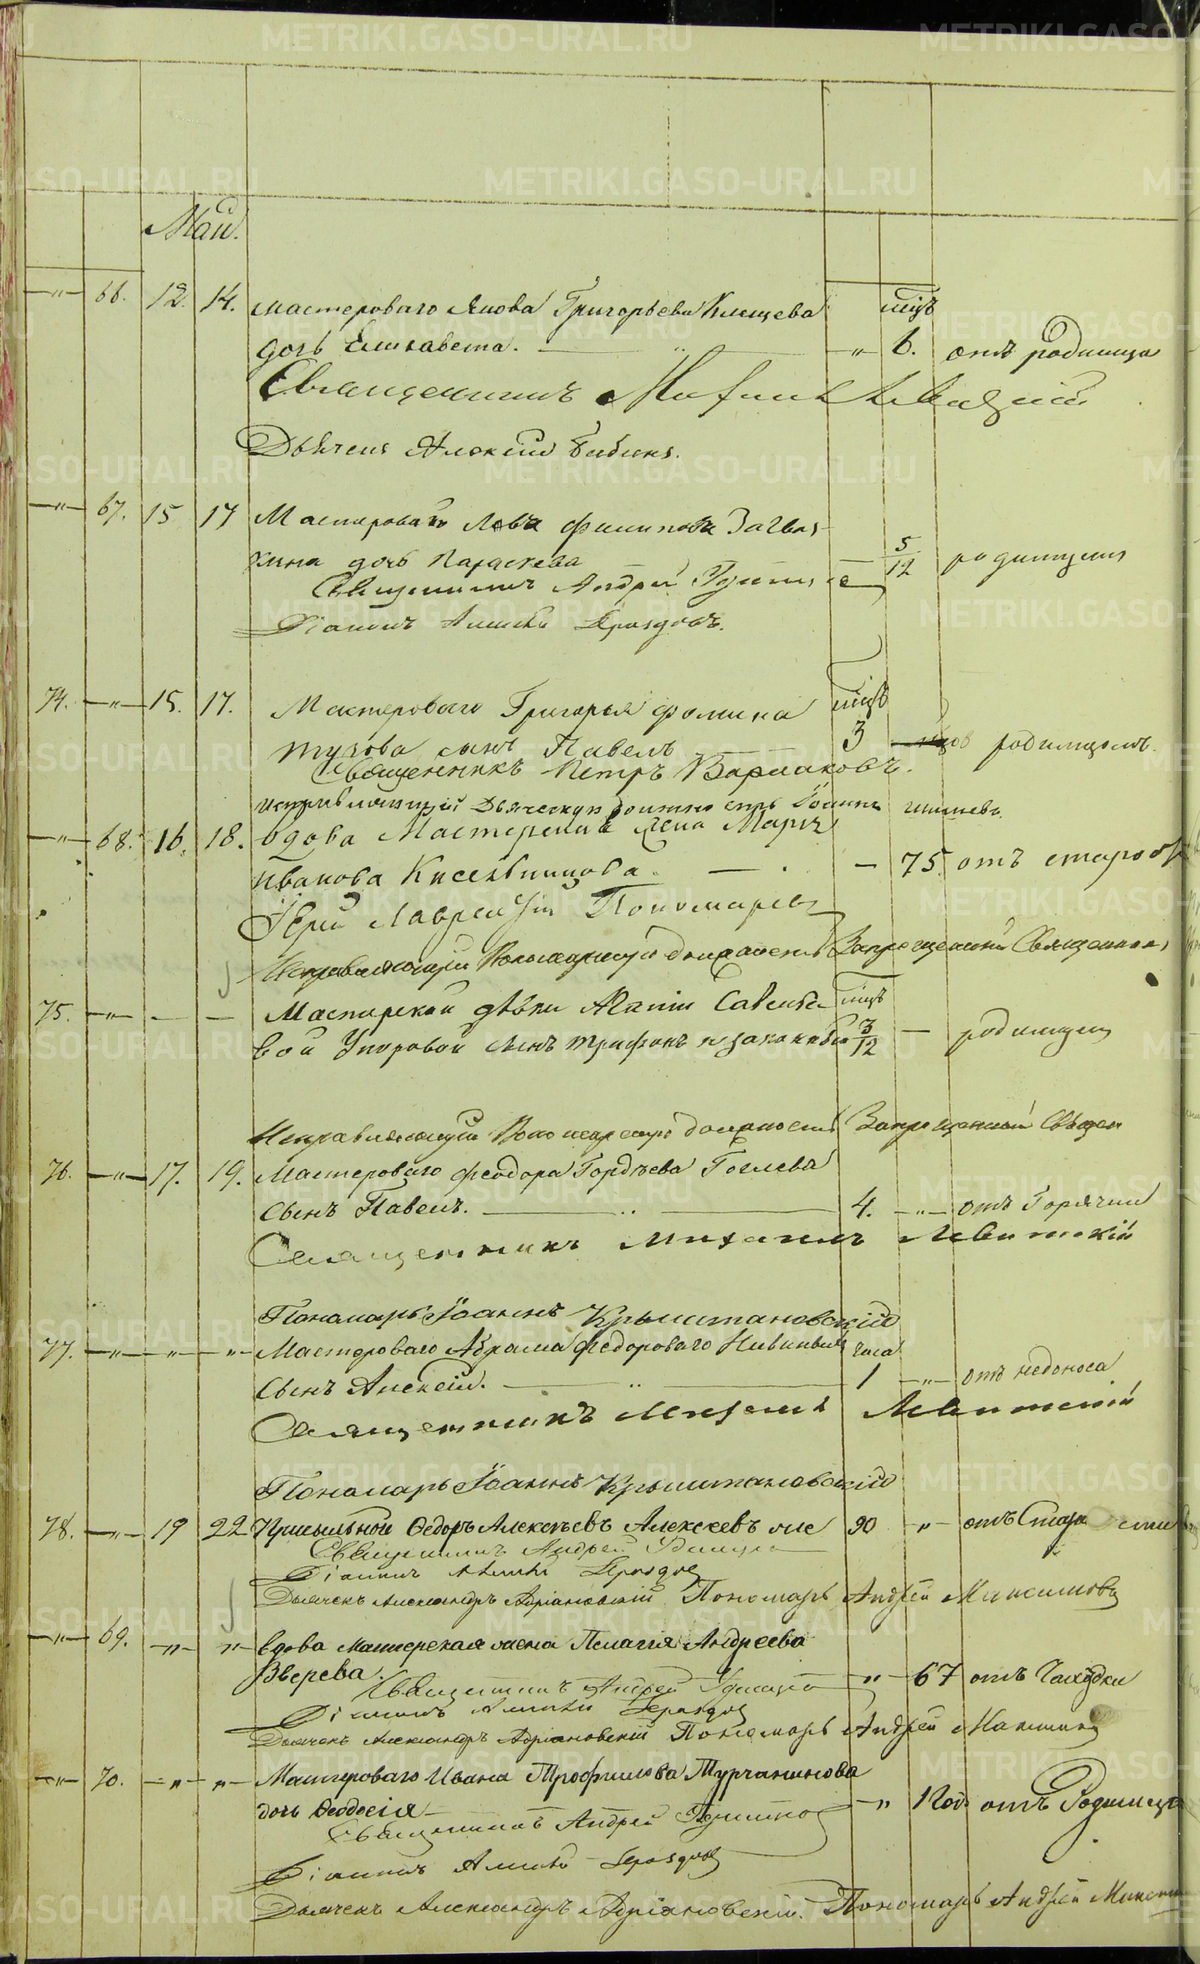 METRIKI.GASO-URAL.RU
Май.
-"- 66. 12. 14. Мастероваго Якова Григорьева Клещева мцъ
дочь Елисавета. " 6. отъ родимца
Священникъ Михаилъ Левицкій
Дьячекъ Алексій Бибикъ.
-"- 67. 15 17 Мастероваго Льва Филипова Загвоз-
кина дочь Параскева — 5/12 родимцемъ
Священникъ Андрей
Діаконъ Дроздовъ.
74. -"- 15. 17. Мастероваго Григорья Фомина мцъ
сынъ Павелъ 3 родимцомъ.
Священникъ Петръ Бармаковъ.
Исправляющій Дьяческую должность Іоаннъ
-"- 68. 16. 18. Вдова Мастерская жена Марья
Иванова Кисельникова. — 75 отъ старо
Іерей Лаврентій Пономаревъ
Исправляющій Пономарскую должность Запрещенный Священник
75. -"- — — Мастерской дѣвки Агапіи Савелье- мцъ
вой Упоровой сынъ Трифонъ незаконный 3/12 — родимцемъ
Исправляющій Пономарскую должность Запрещенный Священ
76. -"- 17. 19. Мастероваго Феодора Гордѣева Гоглева
сынъ Павелъ. 4. -"- отъ Горячки
Священникъ Михаилъ Левитскій
Пономарь Іоаннъ Крыштановскій
77. -"- " " Мастероваго Абрама Федорова часа
сынъ Алексій. 1 -"- отъ недоноса
Священникъ Михаилъ Левитскій
Пономарь Іоаннъ Крыштановскій
78. -"- 19 22 Федоръ Алексѣевъ Алексеевъ 90 " отъ Старости
Священникъ Андрей
Діаконъ Дроздов
Дьячекъ Александръ Адріановскій Пономарь Андрей Максимовъ
-"- 69. " " Вдова мастерская жена Пелагія Андреева
Зверева. " 67 отъ Чахотки
Священникъ Андрей
Діаконъ Дроздов
Дьячекъ Александръ Адріановскій Пономарь Андрей Максимов
-"- 70. " " Мастероваго Ивана Трофимова Турчанинова
дочь Феодосія — " 1 год. отъ Родимца
Священникъ Андрей
Діаконъ Дроздов
Дьячекъ Александръ Адріановскій. Пономарь Андрей Максим